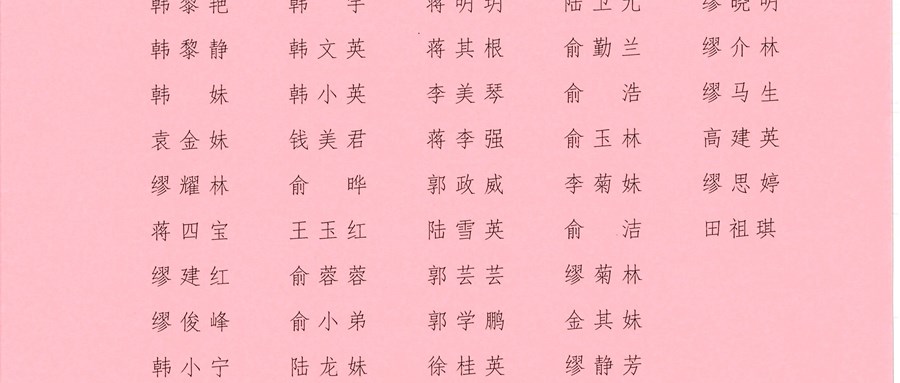 韩黎艳 韩 宇 蒋明玥 陆卫光 缪晓明
韩黎静 韩文英 蒋其根 俞勤兰 缪介林
韩 妹 韩小英 李美琴 俞 浩 缪马生
袁金妹 钱美君 蒋李强 俞玉林 高建英
缪耀林 俞 晔 郭政威 李菊妹 缪思婷
蒋四宝 王玉红 陆雪英 俞 洁 田祖琪
缪建红 俞蓉蓉 郭芸芸 缪菊林
缪俊峰 俞小弟 郭学鹏 金其妹
韩小宁 陆龙妹 徐桂英 缪静芳